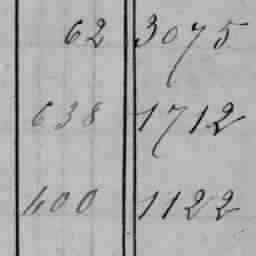 62 3075
638 1712
400 1122